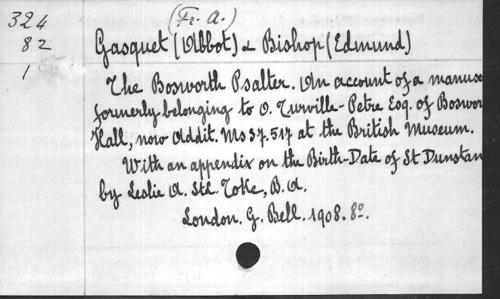 324 (Fr. A.)
82 Gasquet (Abbot) & Bishop (Edmund)
1 The Bosworth Psalter. An account of a manusc
formerly belonging to O. Turville-Petre Esq. of Boswor
Hall, now Addit. Ms 37.517 at the British Museum.
With an appendix on the Birth-Date of St Dunstan
by Leslie A. StL. Toke, B.A.
London. G. Bell. 1908. 8o.